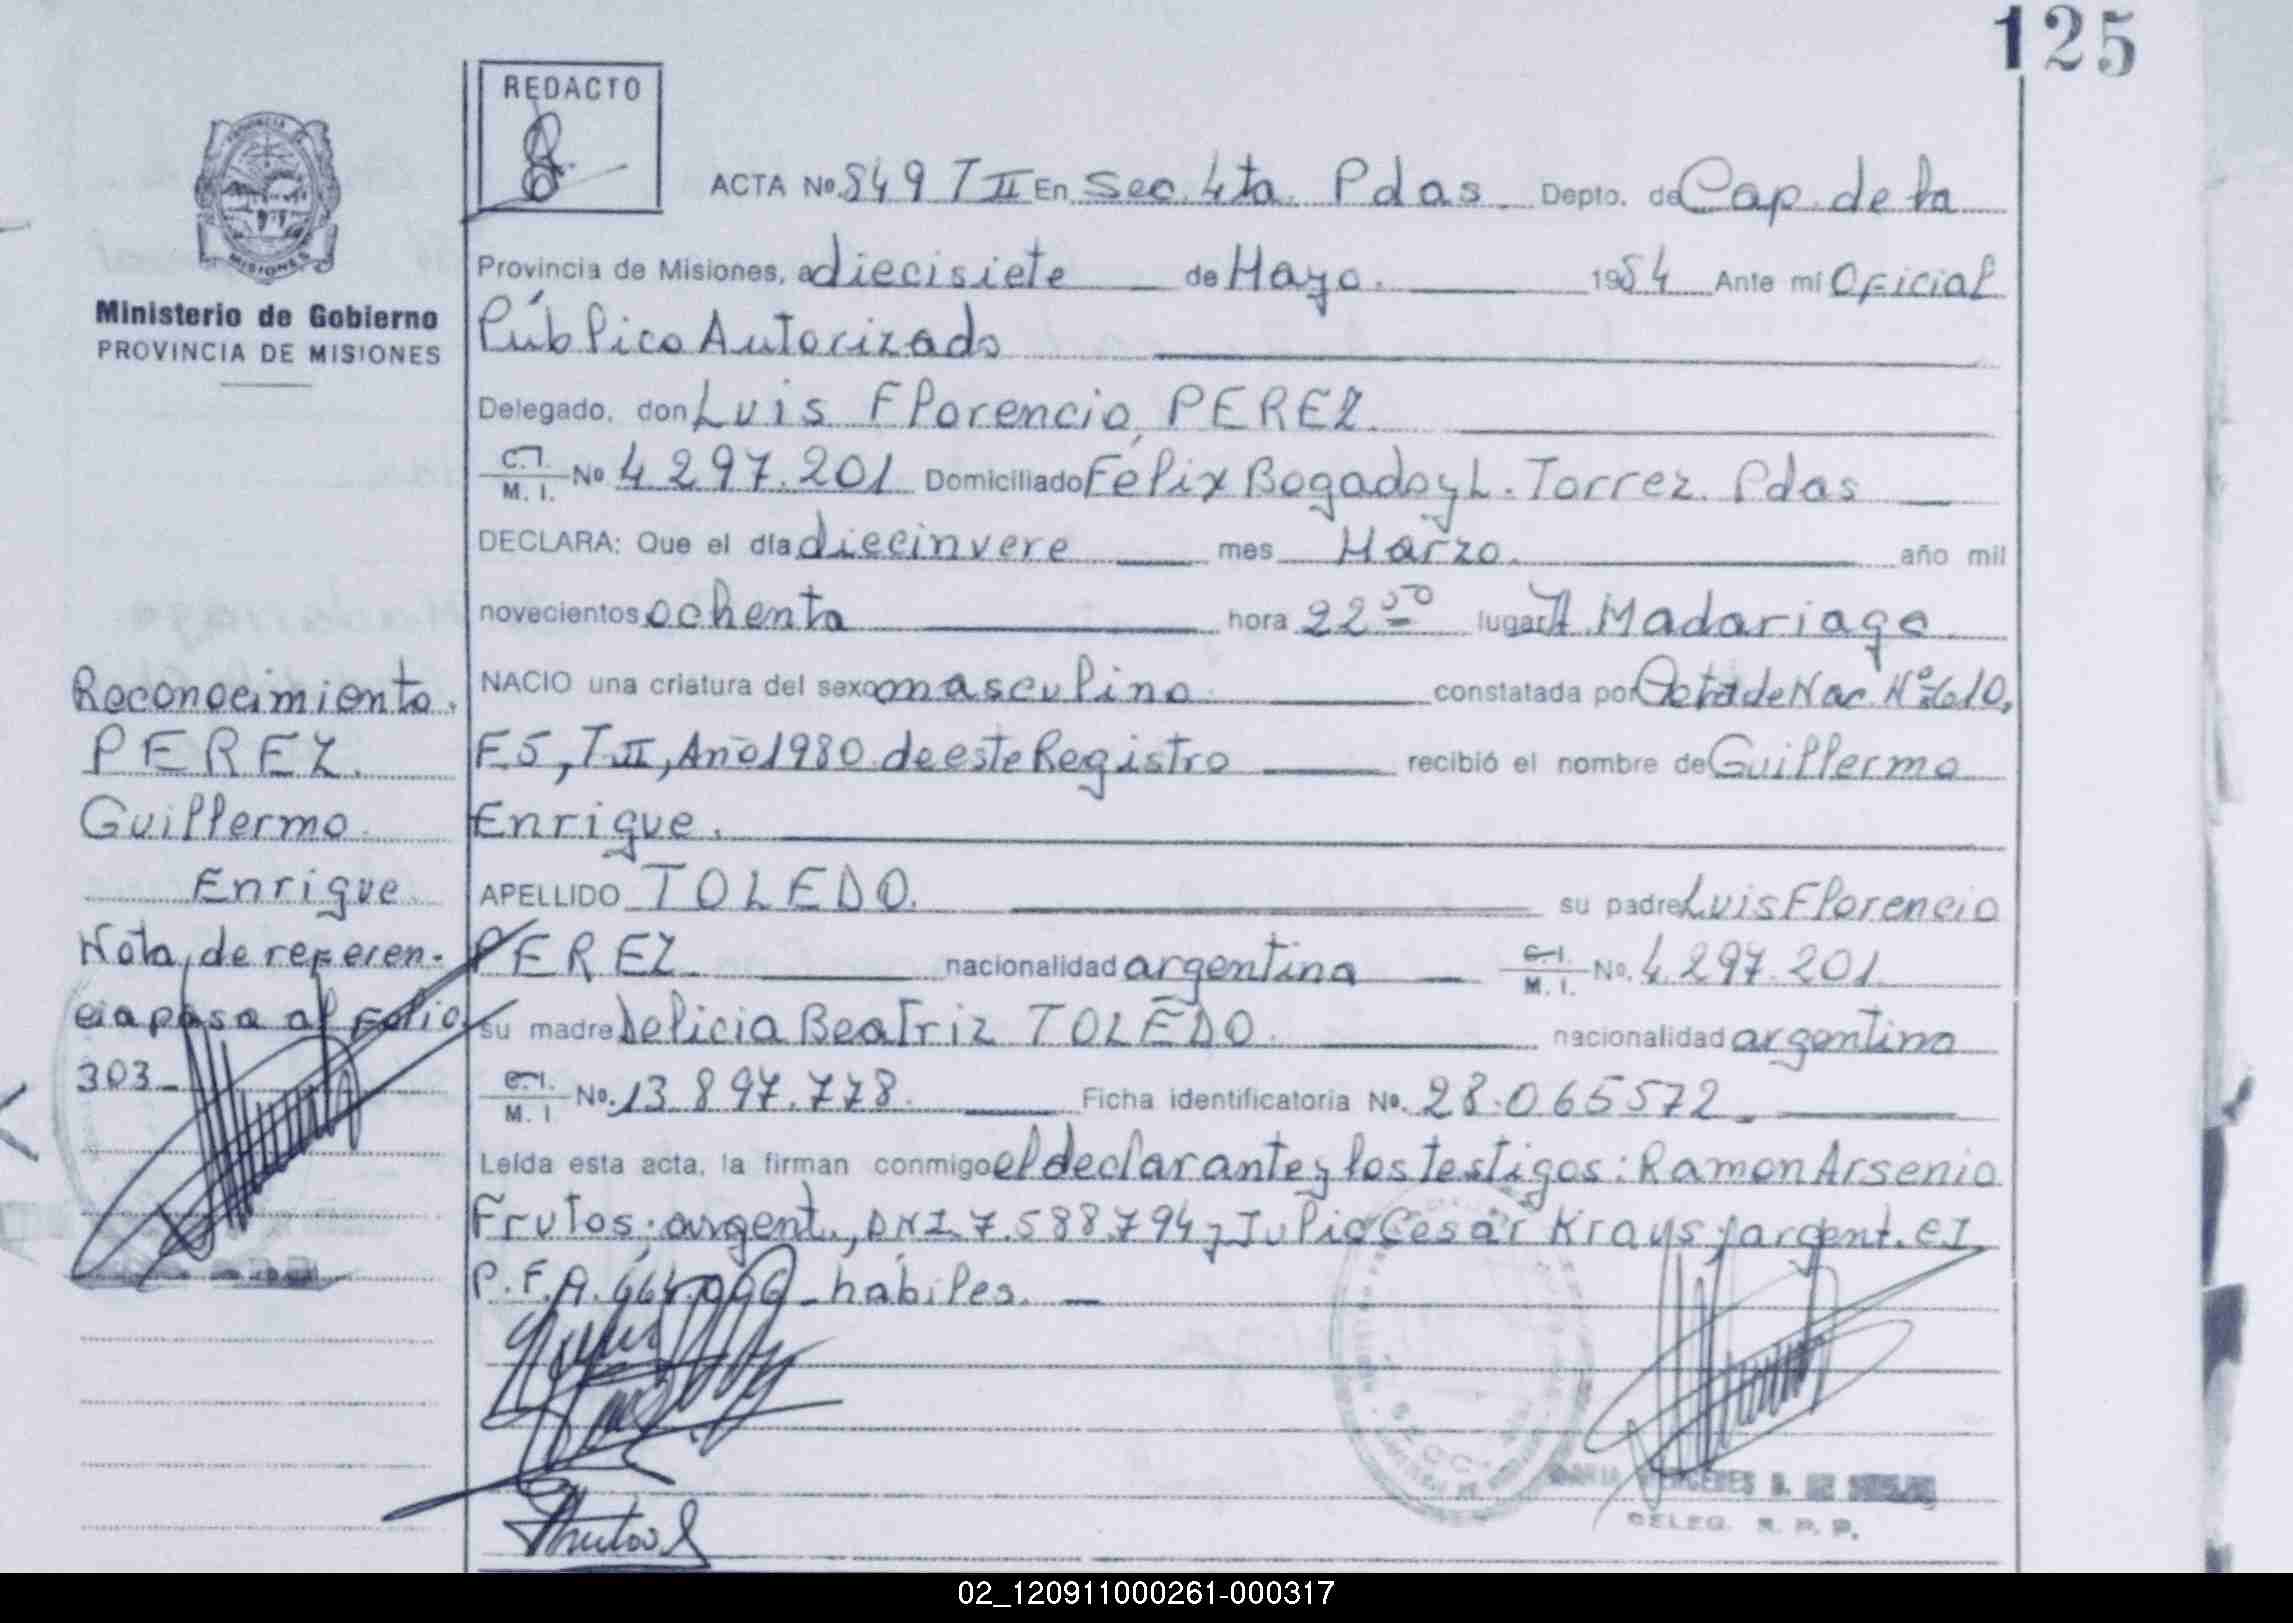 125
REDACTO
PROVINCIA DE
MISIONES
Ministerio de Gobierno
PROVINCIA DE MISIONES
ACTA Nº 849 T II En Sec. 4ta. Pdas. Depto. de Cap. de la
Provincia de Misiones, a diecisiete de Mayo. 1984 Ante mí Oficial
Público Autorizado
Delegado, don Luis Florencio PEREZ.
C.I.
M. I. Nº 4297.201 Domiciliado Félix Bogado y L. Torrez. Pdas
DECLARA: Que el día diecinvere mes Marzo. año mil
novecientos ochenta hora 22 lugar H. Madariaga
NACIO una criatura del sexo masculino constatada por Acta de Nac. Nº 610,
F5, T II, Año 1980 de este Registro recibió el nombre de Guillermo
Enrique.
APELLIDO TOLEDO. su padre Luis Florencio
PEREZ nacionalidad argentina C.I.
M. I. No. 4.297.201
su madre Delicia Beatriz TOLEDO. nacionalidad argentina
C.I.
M. I No. 13.897.778. Ficha identificatoria Nº. 28.065572.
Leída esta acta, la firman conmigo el declarante y los testigos: Ramon Arsenio
Frutos; argent., DNI 7.588.794 y Julio Cesar Krays, argent. CI
P.F.A. habiles.
Reconocimiento.
PEREZ.
Guillermo
Enrique
Nota de referen-
cia pasa al Folio
303-
DELEG. R. P. P.
02_120911000261-000317